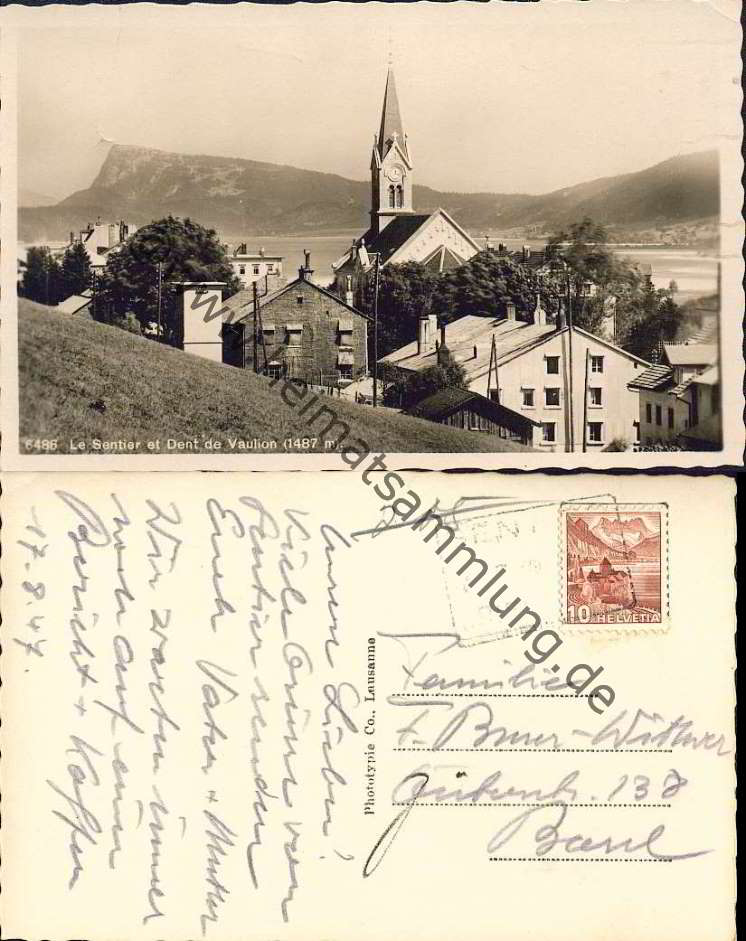 6486 Le Sentier et Dent de Vaulion (1487 m)
www.heimatsammlung.de
Unsere Lieben!
Viele Grüsse von
Sentier senden
Euch Vater + Mutter
Wir warten immer
noch auf einen
Bericht + Karten
17.8.47.
Phototypie Co., Lausanne
10 HELVETIA
Familie
Wittwer
138
Basel